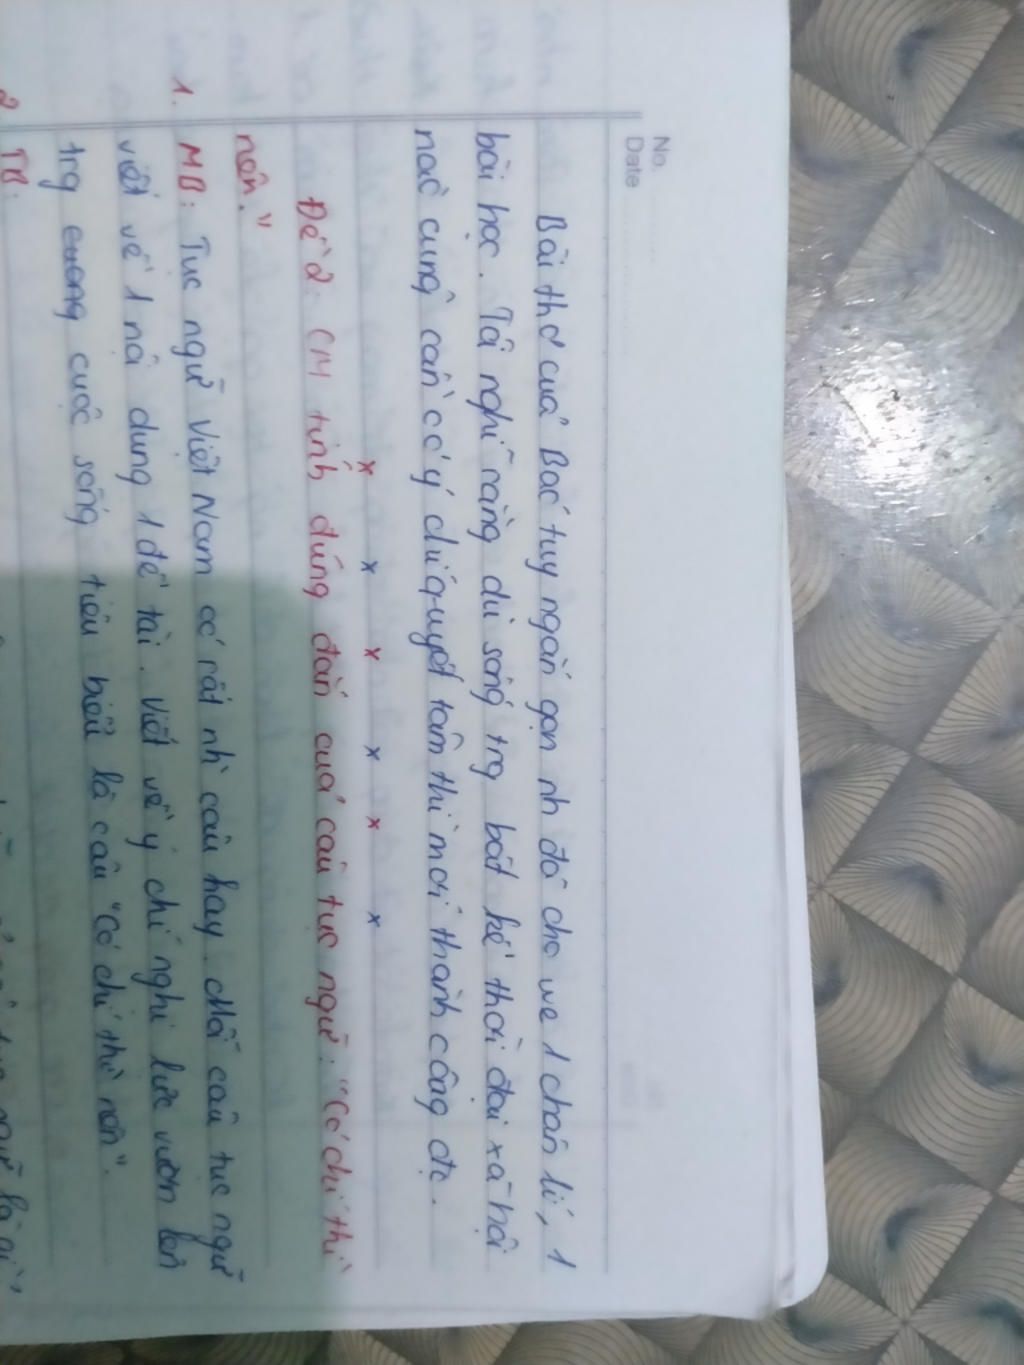 No.
Date
Bài thơ của Bác tuy ngắn gọn nh đó cho we 1 chân lí, 1
bài học. Tôi nghĩ rằng dù sống trg bất kể thời đại xã hội
nào cũng cần có ý chí quyết tâm thì mới thành công đc.
x x x x x x
Đề 2: CM tính đúng đắn của câu tục ngữ: "Có chí thì
nên."
1. MB: Tục ngữ Việt Nam có rất nh` câu hay. Mỗi câu tục ngữ
viết về 1 nội dung 1 đề tài. Viết về ý chí nghị lực vươn lên
trg cuộc sống tiêu biểu là câu "Có chí thì nên".
2 TB: